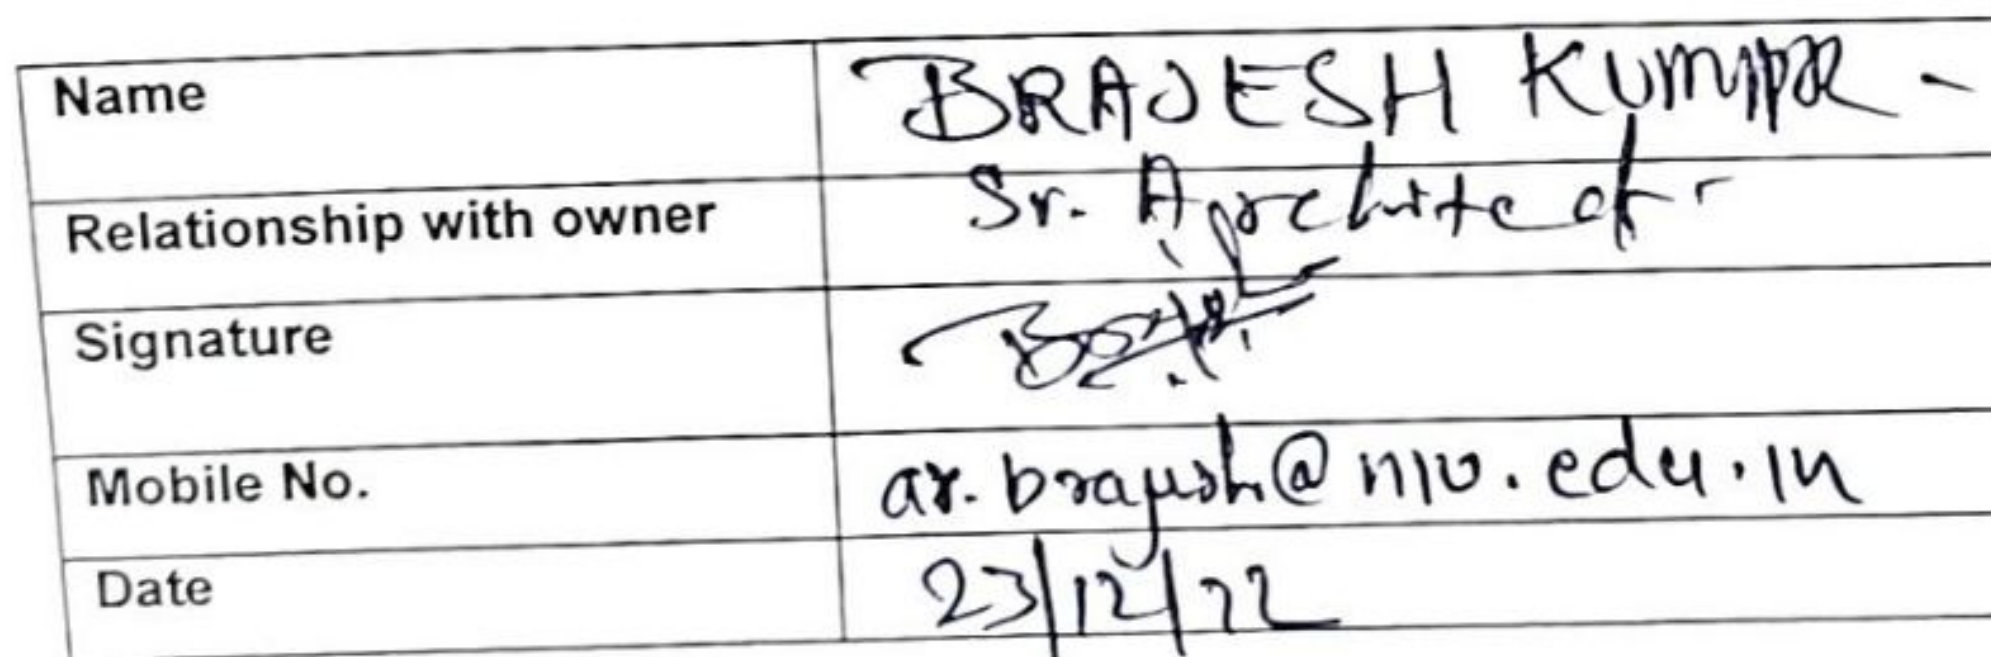 Name BRAJESH KUMAR -
Relationship with owner Sr. Architect -
Signature
Mobile No. ar.brajesh@niu.edu.in
Date 23/12/22